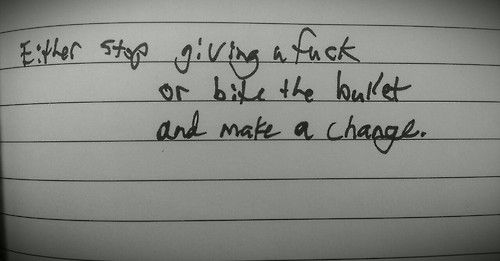 Either stop giving a fuck
or bite the bullet
and make a change.